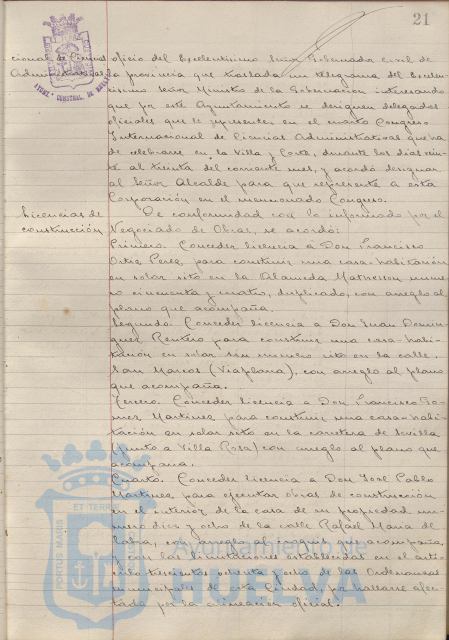 21
cional de Ciencias oficio del Excelentísimo Señor Gobernador civil de
Administrativas la provincia que traslada un telegrama del Excelen-
tísimo Señor Ministro de la Gobernación interesando
que por este Ayuntamiento se designen delegados
oficiales que le representen en el cuarto Congreso
Internacional de Ciencias Administrativas que va
de celebrarse en la Villa y Corte, durante los días vein-
te al treinta del corriente mes, y acordó designar
al Señor Alcalde para que represente a esta
Corporación en el mencionado Congreso.
Licencias de De conformidad con lo informado por el
construcción Negociado de Obras, se acordó:
Primero. Conceder licencia á Don Francisco
Ortiz Perez, para construir una casa-habitación
en solar sito en la Alameda Matheson núme-
ro cincuenta y cuatro, duplicado, con arreglo al
plano que acompaña.
Segundo. Conceder licencia a Don Juan Domin-
guez Rentero para construir una casa-habi-
tación en solar sin número sito en la calle
San Marcos (Viaplana), con arreglo al plano
que acompaña.
Tercero. Conceder licencia a Don Francisco Gó-
mez Martinez para construir una casa-habi-
tación en solar sito en la carretera de Sevilla
(junto a Villa Rosa) con arreglo al plano que
acompaña.
Cuarto. Conceder licencia a Don José Pablo
Martinez para ejecutar obras de construcción
en el interior de la casa de su propiedad nú-
mero diez y ocho de la calle Rafael Maria de
Labra, con arreglo al croquis que acompaña,
y con las limitaciones establecidas en el artí-
culo trescientos ochenta y ocho de las Ordenanzas
municipales de esta Ciudad, por hallarse afec-
tada por la alineación oficial.
PORTUS MARIS
ET TERRAE
Ayuntamiento de
HUELVA